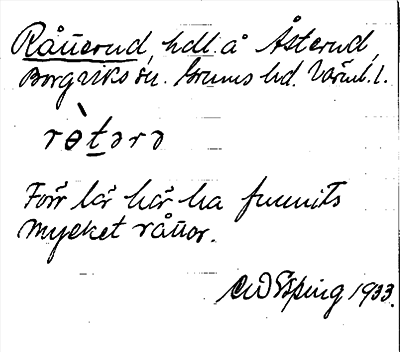 Råtterud, hdl. å Åsterud,
Borgviks sn. Grums hd. Värml. l.
rɵ̀t̠ərə
Förr lär här ha funnits
mycket råttor.
CW Esping 1933.